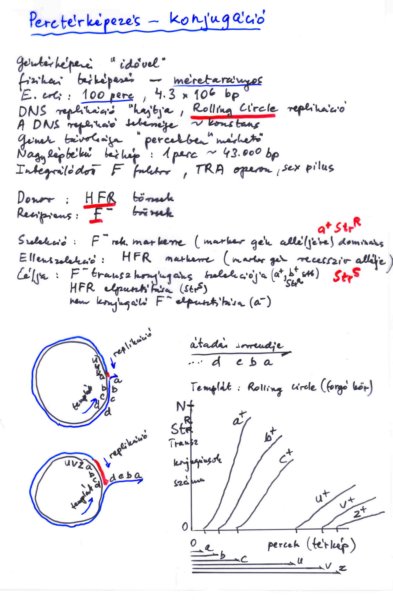 Perctérképezés – konjugáció
Géntérképezés "idővel"
fizikai térképezés – méretarányos
E. coli : 100 perc, 4.3 x 10⁶ bp
DNS replikáció "hajtja", Rolling Circle replikáció
A DNS replikáció sebessége ~ konstans
Gének távolsága "percekben" mérhető
Nagyléptékű térkép : 1 perc ~ 43.000 bp
Integrálódó F faktor, TRA operon, sex pilus
Donor : HFR törzsek
Recipiens : F⁻ törzsek
a⁺ Strᴿ
Szelekció : F⁻-nek markerre (marker gén alléljaira) domináns
Ellenszelekció : HFR markerre (marker gén recesszív allélje)
Célja : F⁻ transzkonjugáns szelekciója (a⁺, b⁺ stb
Strᴿ
Strˢ
HFR elpusztítása (Strˢ)
nem konjugáló F⁻ elpusztítása (a⁻)
replikáció
templát
a
b
c
d
átadás sorrendje
.... d c b a
Templát : Rolling circle (forgó kör)
replikáció
u v z a
templát
d c b a
N
Strᴿ
Transz
konjugánsok
száma
a⁺
b⁺
c⁺
u⁺
v⁺
z⁺
0
0
percek (térkép)
a
b
c
u
v
z